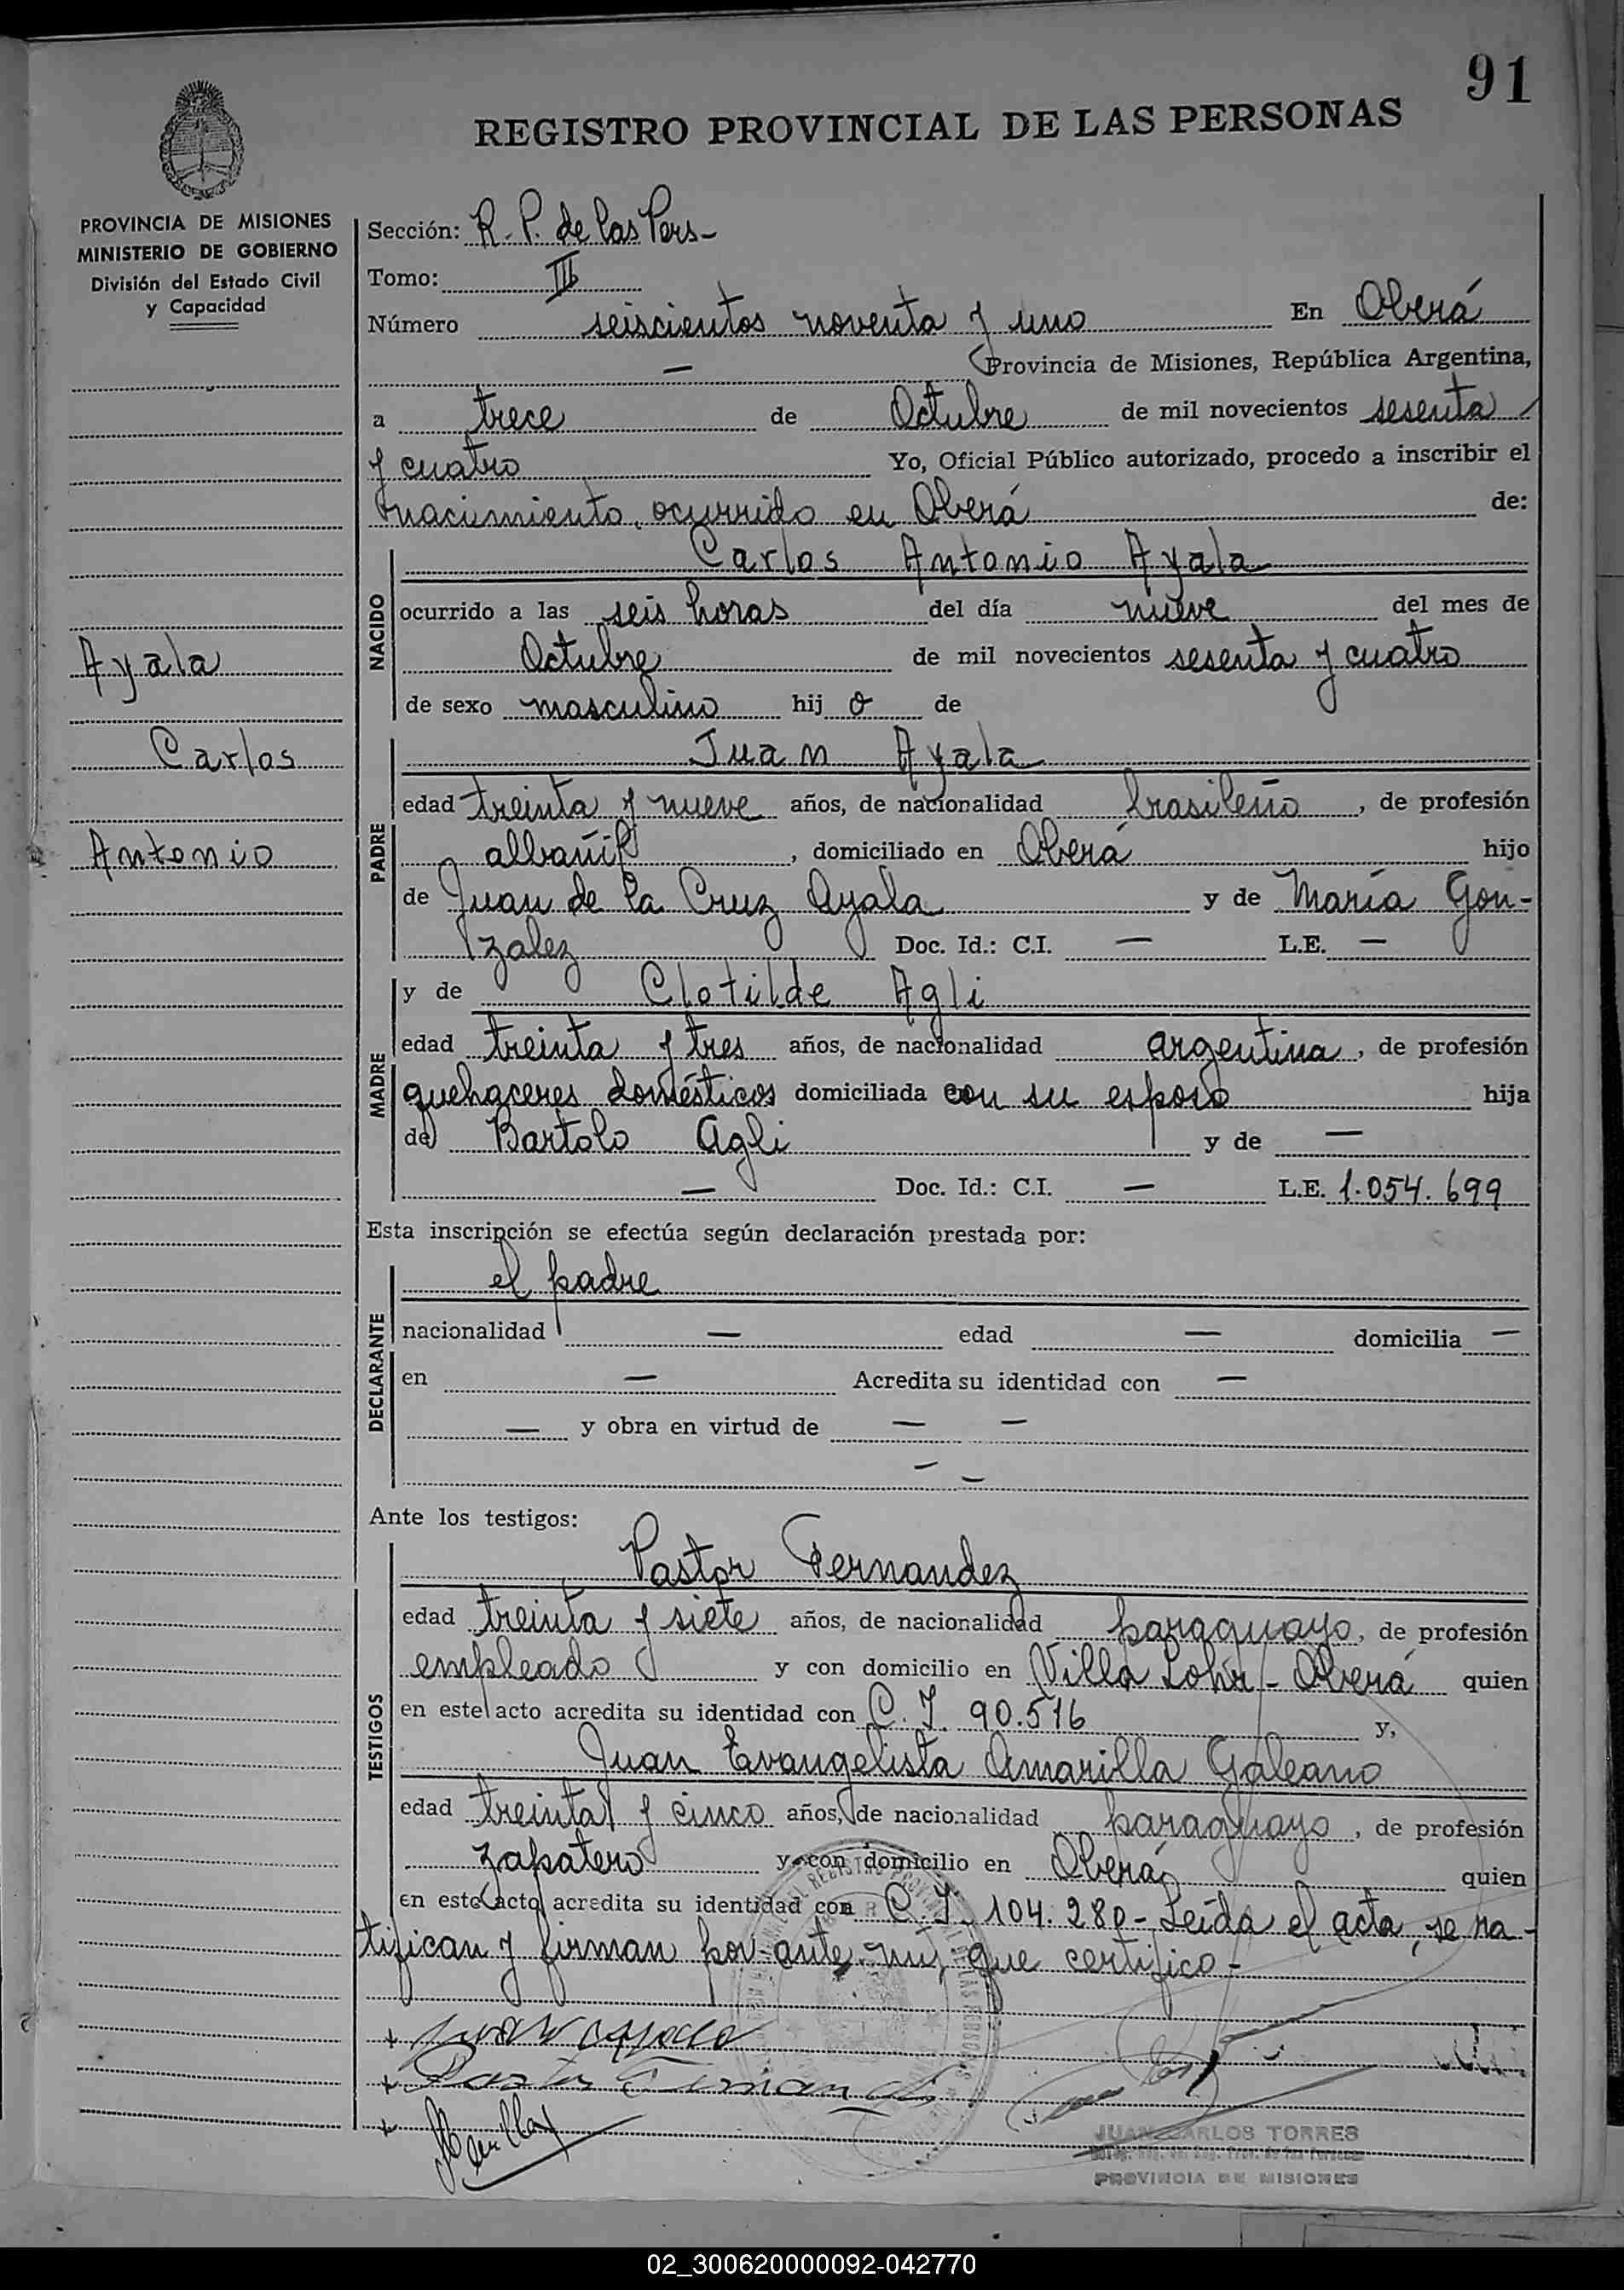 91
REGISTRO PROVINCIAL DE LAS PERSONAS
PROVINCIA DE MISIONES
MINISTERIO DE GOBIERNO
División del Estado Civil
y Capacidad
Sección: R. P. de las Pers-
Tomo: III
Número seiscientos noventa y uno En Oberá
— Provincia de Misiones, República Argentina,
a trece de Octubre de mil novecientos sesenta
y cuatro Yo, Oficial Público autorizado, procedo a inscribir el
nacimiento, ocurrido en Oberá de:
NACIDO
Carlos Antonio Ayala
ocurrido a las seis horas del día nueve del mes de
Octubre de mil novecientos sesenta y cuatro
de sexo masculino hij o de
Ayala
Carlos
Antonio
PADRE
Juan Ayala
edad treinta y nueve años, de nacionalidad brasileño, de profesión
albañil, domiciliado en Oberá hijo
de Juan de la Cruz Ayala y de María Gon-
zalez Doc. Id.: C.I. — L.E. —
MADRE
y de Clotilde Agli
edad treinta y tres años, de nacionalidad argentina, de profesión
quehaceres domésticos domiciliada con su esposo hija
de Bartolo Agli y de —
— Doc. Id.: C.I. — L.E. 1.054.699
Esta inscripción se efectúa según declaración prestada por:
DECLARANTE
el padre
nacionalidad — edad — domicilia —
en — Acredita su identidad con —
— y obra en virtud de — —
— —
Ante los testigos:
TESTIGOS
Pastor Fernandez
edad treinta y siete años, de nacionalidad paraguayo, de profesión
empleado y con domicilio en Villa Lohr - Oberá quien
en este acto acredita su identidad con C. I. 90.516 y,
Juan Evangelista Amarilla Galeano
edad treinta y cinco años, de nacionalidad paraguayo, de profesión
zapatero y con domicilio en Oberá quien
en este acto acredita su identidad con C. I. 104.280- Leída el acta, se ra-
tifican y firman por ante mí, que certifico-
Juan Ayala
Pastor Fernandez
JUAN CARLOS TORRES
PROVINCIA DE MISIONES
02_300620000092-042770